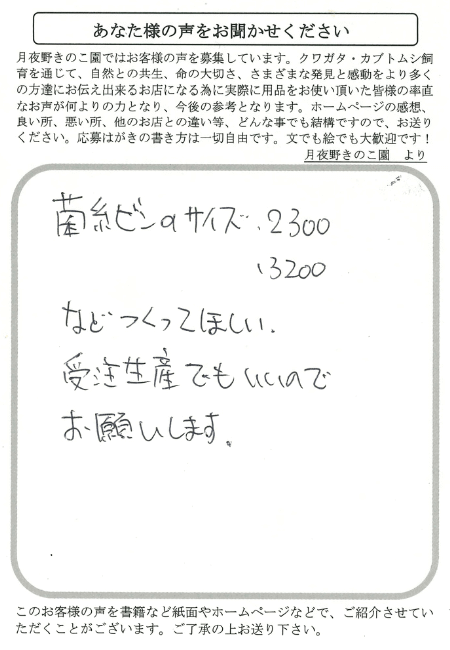 あなた様の声をお聞かせください
月夜野きのこ園ではお客様の声を募集しています。クワガタ・カブトムシ飼
育を通じて、自然との共生、命の大切さ、さまざまな発見と感動をより多く
の方達にお伝え出来るお店になる為に実際に用品をお使い頂いた皆様の率直
なお声が何よりの力となり、今後の参考となります。ホームページの感想、
良い所、悪い所、他のお店との違い等、どんな事でも結構ですので、お送り
ください。応募はがきの書き方は一切自由です。文でも絵でも大歓迎です！
月夜野きのこ園　より
菌糸ビンのサイズ、2300
、3200
などつくってほしい.
受注生産でもいいので
お願いします。
このお客様の声を書籍など紙面やホームページなどで、ご紹介させてい
ただくことがございます。ご了承の上お送り下さい。